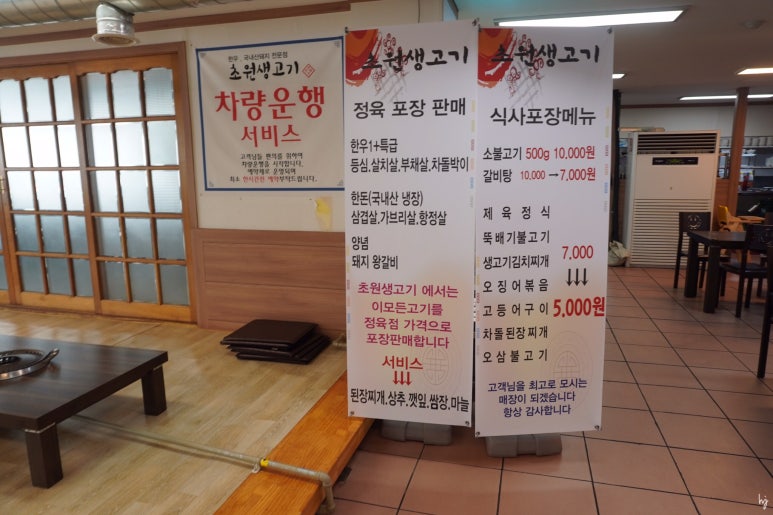 한우. 국내산돼지 전문점
초원생고기
차량운행
서비스
고객님들 편의를 위하여
차량운행을 시작합니다.
예약제로 운영되며
최소 한시간전 예약부탁드립니다.
초원생고기
정육 포장 판매
한우1+특급
등심,살치살,부채살,차돌박이
한돈(국내산 냉장)
삼겹살,가브리살,항정살
양념
돼지 왕갈비
초원생고기 에서는
이모든고기를
정육점 가격으로
포장판매합니다
서비스
↓↓↓
된장찌개,상추,깻잎,쌈장,마늘
초원생고기
식사포장메뉴
소불고기 500g 10,000원
갈비탕 10,000 →7,000원
제육정식
뚝배기불고기
생고기김치찌개 7,000
오징어볶음 ↓↓↓
고등어구이 5,000원
차돌된장찌개
오삼불고기
고객님을 최고로 모시는
매장이 되겠습니다
항상 감사합니다